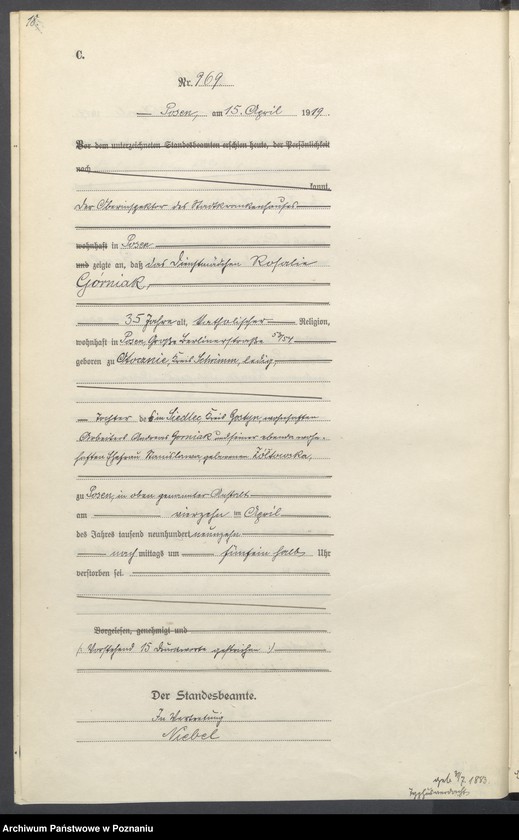 C.
Nr. 969
Posen, am 15. April 1919.
Vor dem unterzeichneten Standesbeamten erschien heute, der Persönlichkeit
nach
kannt,
Der Oberinspektor des Stadtkrankenhauses
wohnhaft in Posen
und zeigte an, daß das Dienstmädchen Rosalie
Górniak,
35 Jahre alt, katholischer Religion,
wohnhaft in Posen Große Berlinerstraße
geboren zu Kreis Schrimm, ledig,
Tochter des in Siedlec Kreis Gostyn, wohnhaften
Arbeiters Andreas Górniak und seiner ebenda wohn-
haften Ehefrau Stanislawa, geborenen Zóltowska,
zu Posen, in oben genannter Anstalt
am vierzehn ten April
des Jahres tausend neunhundert neunzehn
nach mittags um fünfeinhalb Uhr
verstorben sei.
Vorgelesen, genehmigt und
(: Vorstehend 15 Druckworte gestrichen :)
Der Standesbeamte.
In Vertretung
Niebel
geb. 1883.
Typhusverdacht
Archiwum Państwowe w Poznaniu